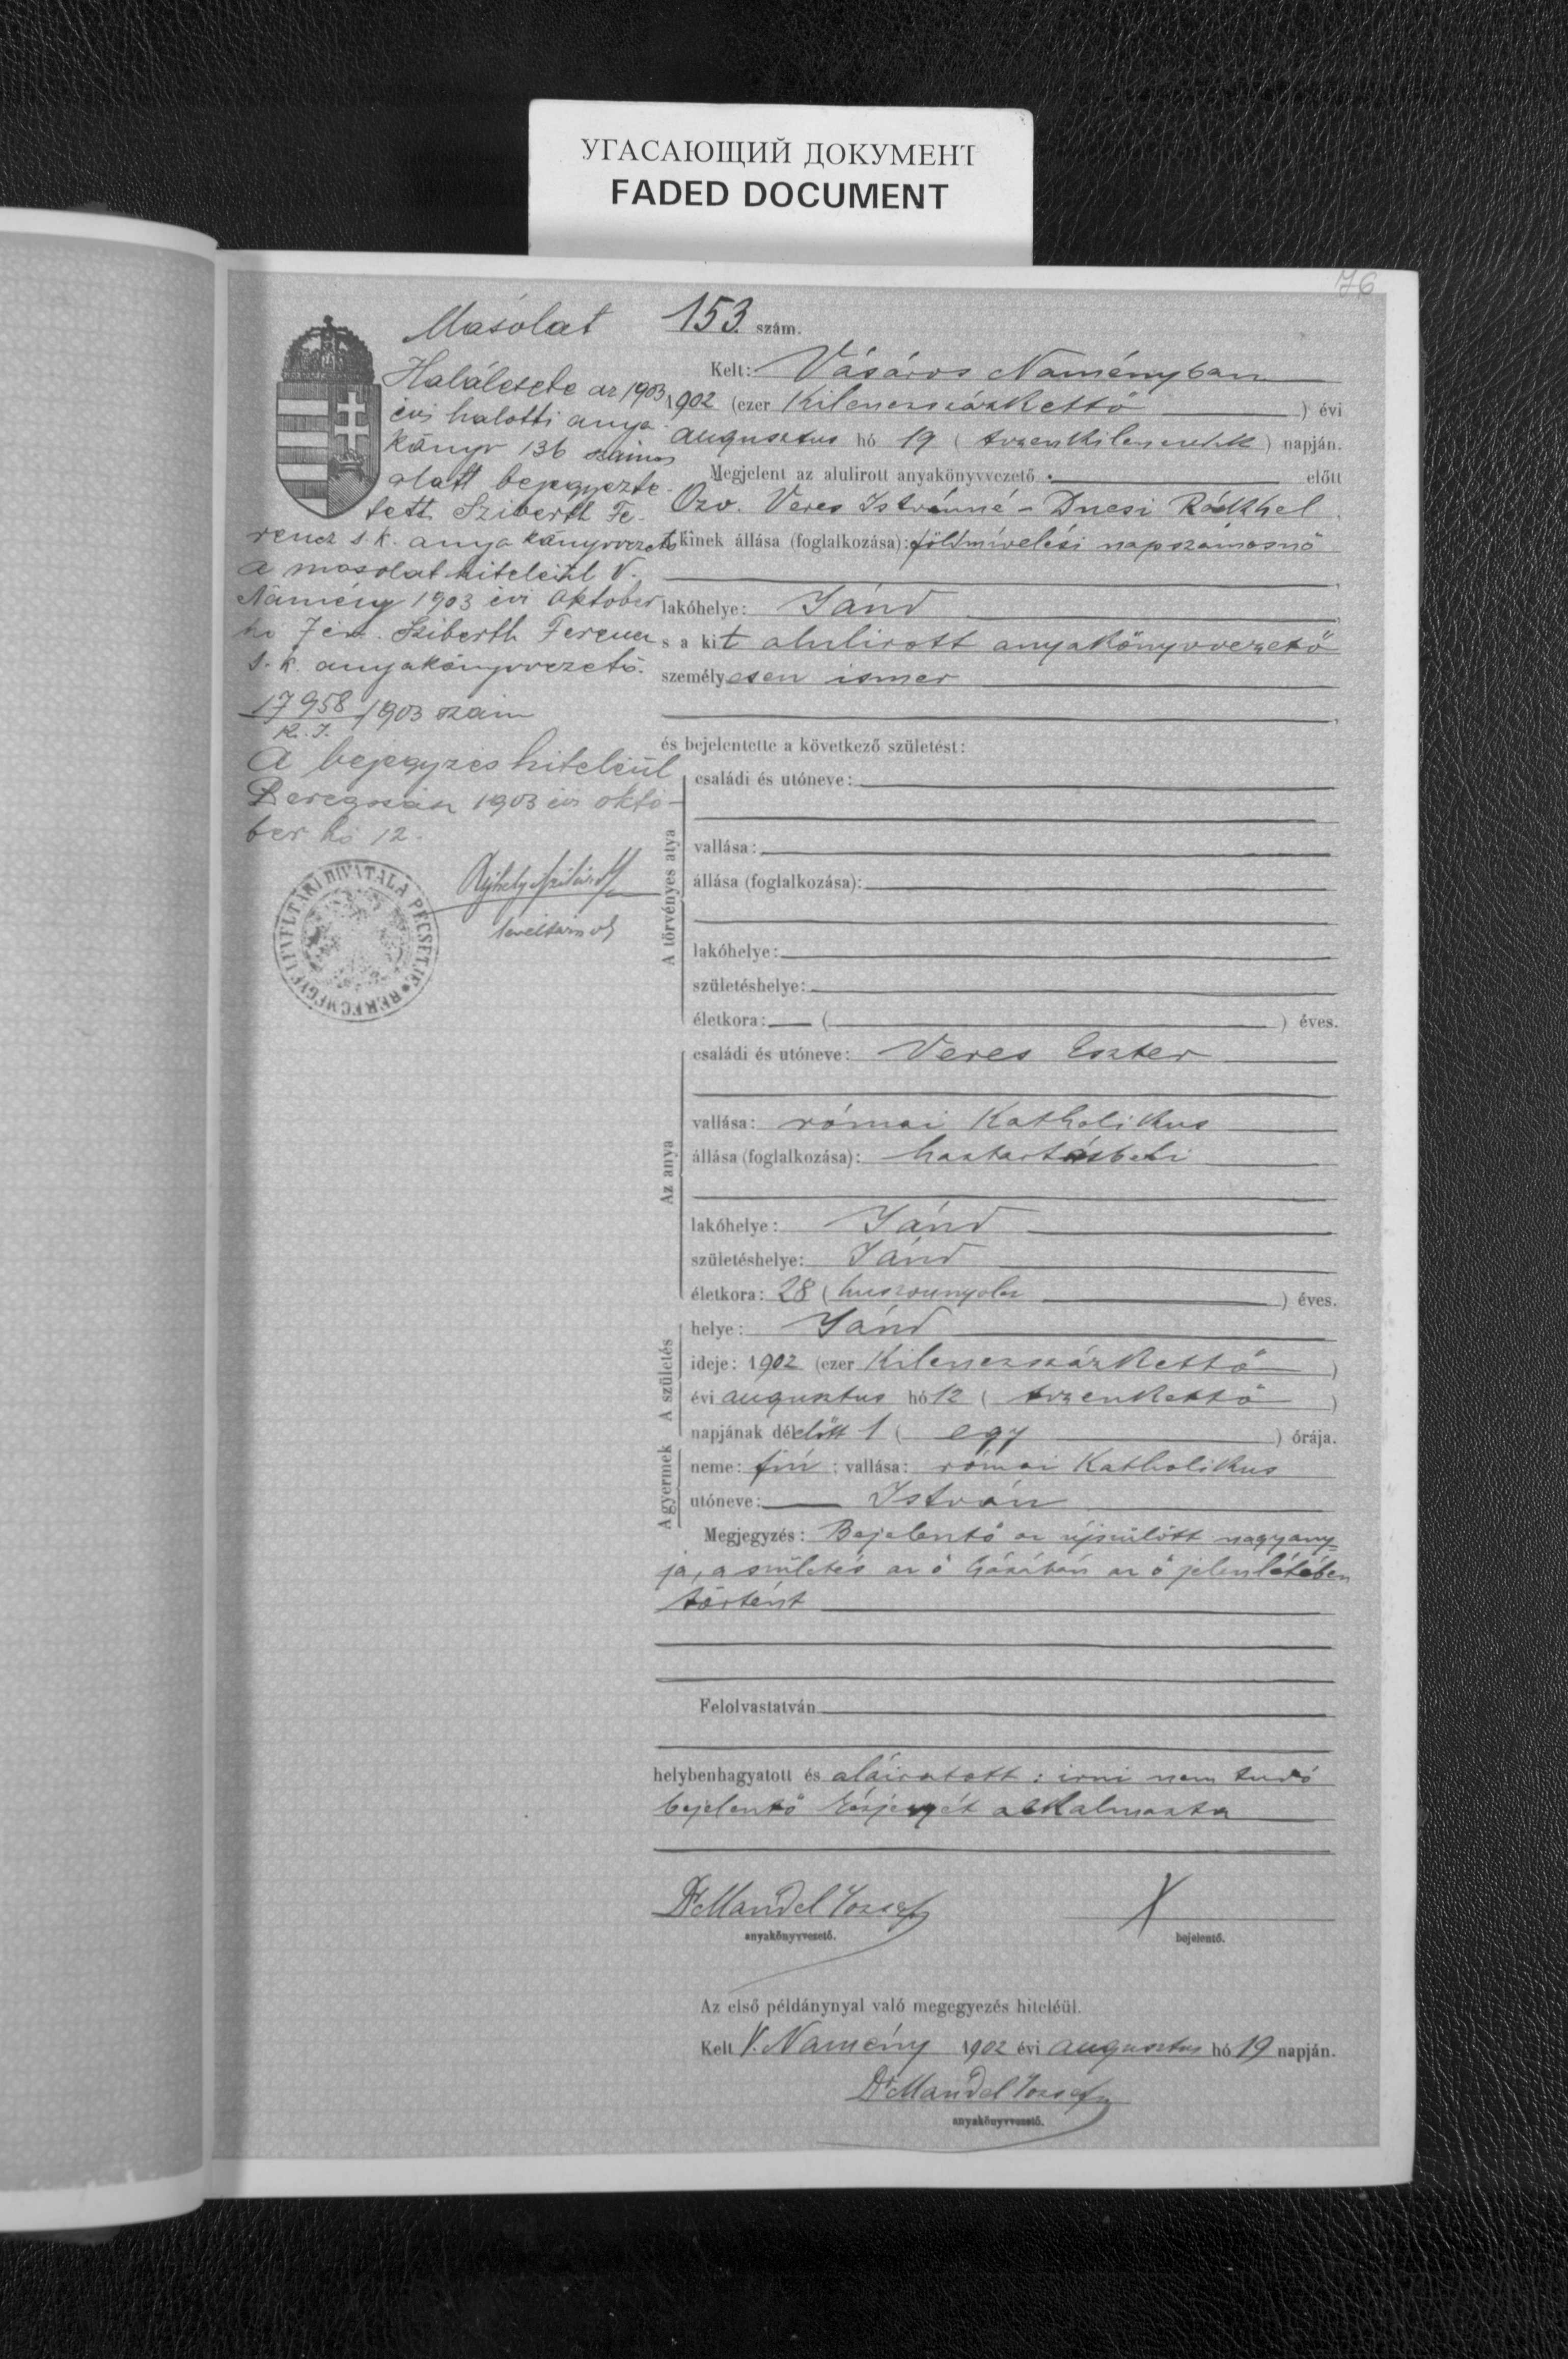 УГАСАЮЩИЙ ДОКУМЕНТ
FADED DOCUMENT
76
Másolat
Halálesete az 1903
évi halotti anya-
könyv 136 száma
alatt bejegyezte-
tett Sziberth Fe-
rencz s. k. anyakönyvvezető
A másolat hiteléül V.
Namény 1903 évi Október
hó 7én. Sziberth Ferencz
s. k. anyakönyvvezető.
17958/1903 szám
K. I.
A bejegyzés hiteléül
Beregszász 1903 évi októ-
ber hó 12.
levéltárnok
153. szám.
Kelt: Vásáros Naményban
1902 (ezer kilenczszázkettő ) évi
augusztus hó 19 ( tizenkilenczedik ) napján.
Megjelent az alulirott anyakönyvvezető előtt
Özv. Veres Istvánné - Ducsi Rákhel
kinek állása (foglalkozása): földmívelési napszámosnő
lakóhelye: Jánd
s a kit alulirott anyakönyvvezető
személyesen ismer
és bejelentette a következő születést:
A törvényes atya
családi és utóneve:
vallása:
állása (foglalkozása):
lakóhelye:
születéshelye:
életkora: ( ) éves.
Az anya
családi és utóneve: Veres Eszter
vallása: római katholikus
állása (foglalkozása): háztartásbeli
lakóhelye: Jánd
születéshelye: Jánd
életkora: 28 ( huszonnyolcz ) éves.
A születés
helye: Jánd
ideje: 1902 (ezer kilenczszázkettő )
évi augusztus hó 12 ( tizenkettő )
napjának délelőtt 1 ( egy ) órája.
A gyermek
neme: fiú ; vallása: római katholikus
utóneve: István
Megjegyzés: Bejelentő az újszülött nagyany-
ja, a születés az ő házában az ő jelenlétében
történt
Felolvastatván
helybenhagyatott és aláiratott : irni nem tudó
bejelentő kézjegyét alkalmazta
Dr Mandel József X
anyakönyvvezető. bejelentő.
Az első példánynyal való megegyezés hiteléül.
Kelt V. Namény 1902 évi augusztus hó 19 napján.
Dr Mandel József
anyakönyvvezető.